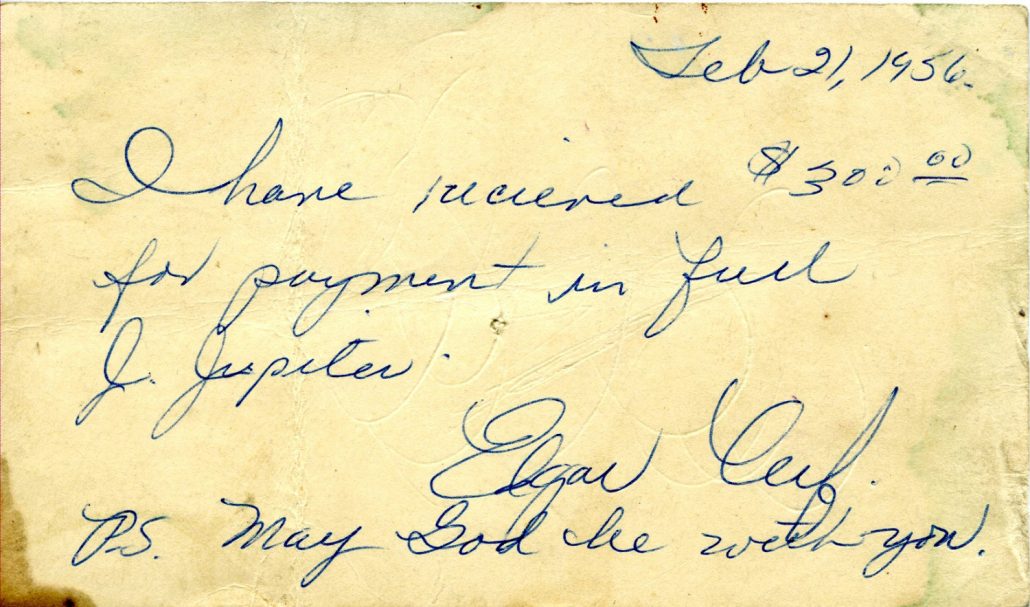 Feb 21, 1956.
I have recieved $300 00
for payment in full
J. Jupiter.
Edgar
P.S. May God be with you.